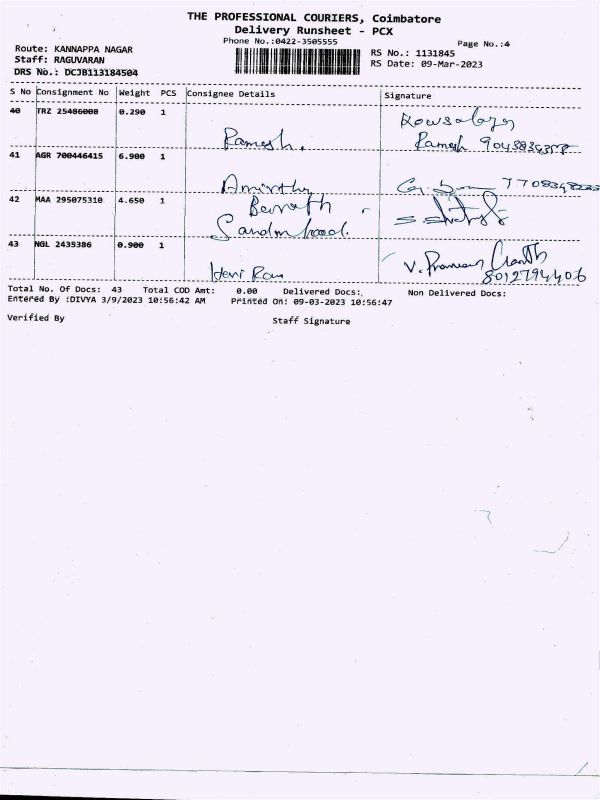 THE PROFESSIONAL COURIERS, Coimbatore
Delivery Runsheet - PCX
Phone No.:0422-3505555
Page No.:4
Route: KANNAPPA NAGAR
RS No.: 1131845
Staff: RAGUVARAN
RS Date: 09-Mar-2023
DRS No.: DCJB113184504
S No Consignment No Weight PCS Consignee Details Signature
40 TRZ 25486008 0.290 1
Ramesh. Ramesh
41 AGR 700446415 6.900 1
Amirtha
42 MAA 295075310 4.650 1
43 NGL 2435386 0.900 1
Hari Ram 8012794406
Total No. Of Docs: 43 Total COD Amt: 0.00 Delivered Docs: Non Delivered Docs:
Entered By :DIVYA 3/9/2023 10:56:42 AM Printed On: 09-03-2023 10:56:47
Verified By Staff Signature